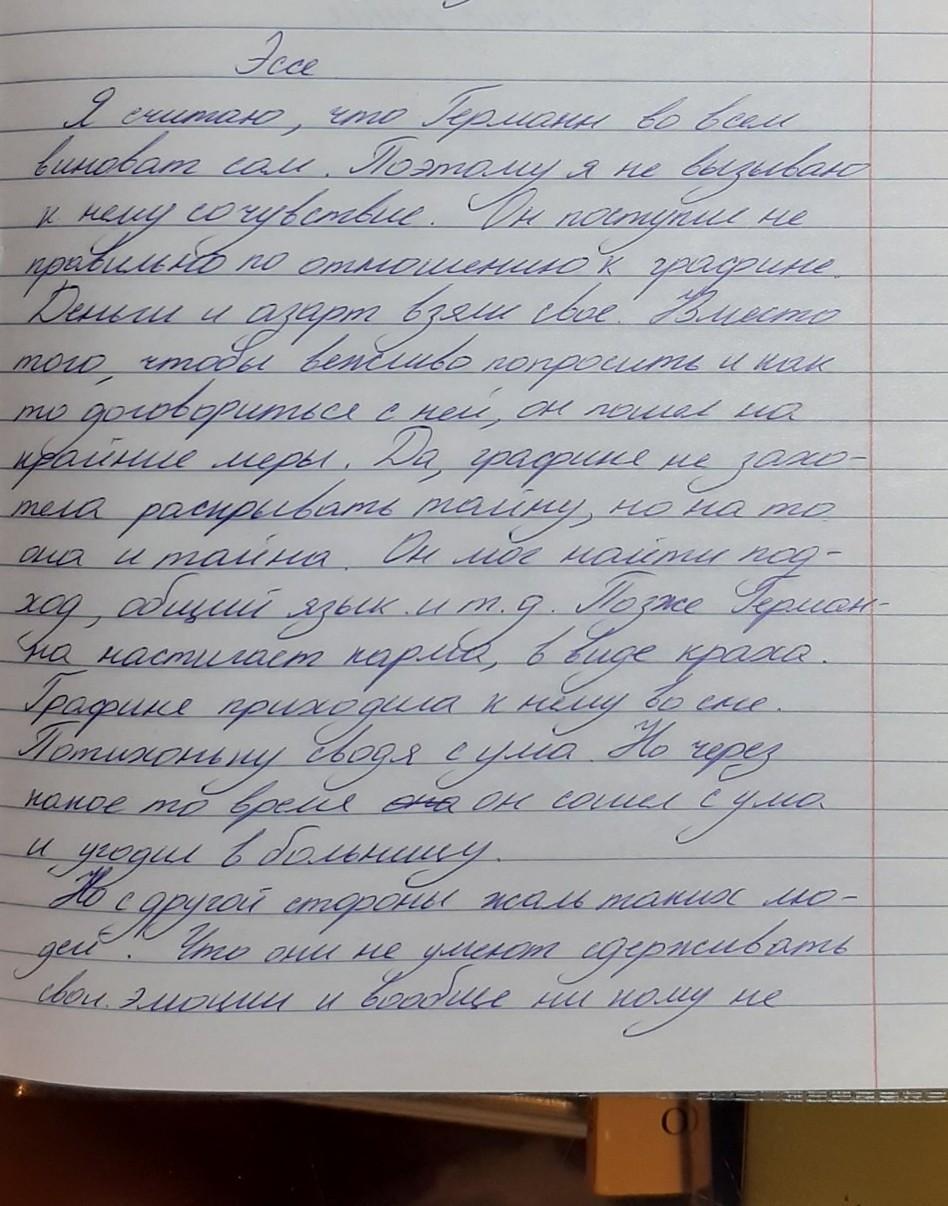 Эссе
Я считаю, что Германн во всем
виноват сам. Поэтому я не вызываю
к нему сочувствие. Он поступил не
правильно по отношению к графине.
Деньги и азарт взяли свое. Вместо
того, чтобы вежливо попросить и как
то договориться с ней, он пошел на
крайние меры. Да, графиня не захо-
тела раскрывать тайну, но на то
она и тайна. Он мог найти под-
ход, общий язык и т.д. Позже Герман-
на настигает карма, в виде краха.
Графиня приходила к нему во сне.
Потихоньку сводя с ума. Но через
какое то время она он сошел с ума
и угодил в больницу.
Но с другой стороны жаль таких лю-
дей. Что они не умеют сдерживать
свои эмоции и вообще ни кому не